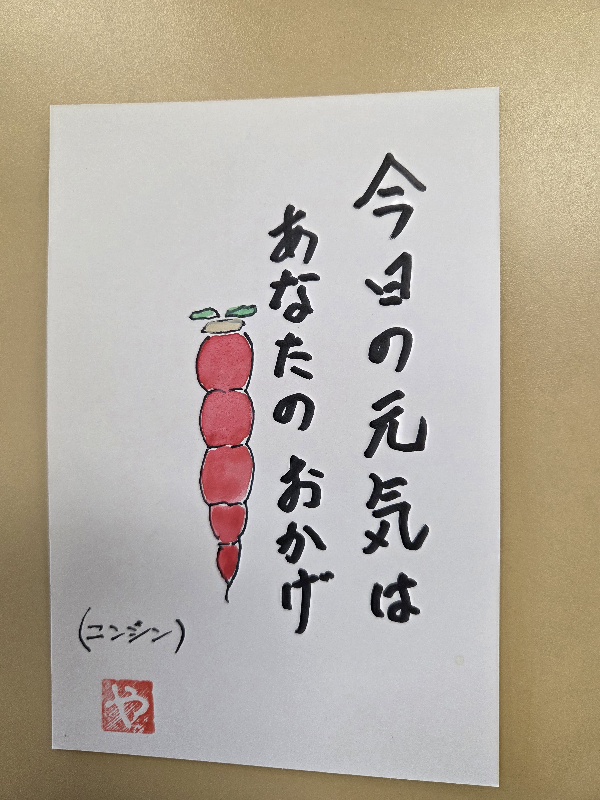 今日の元気は
あなたのおかげ
(ニンジン)
や